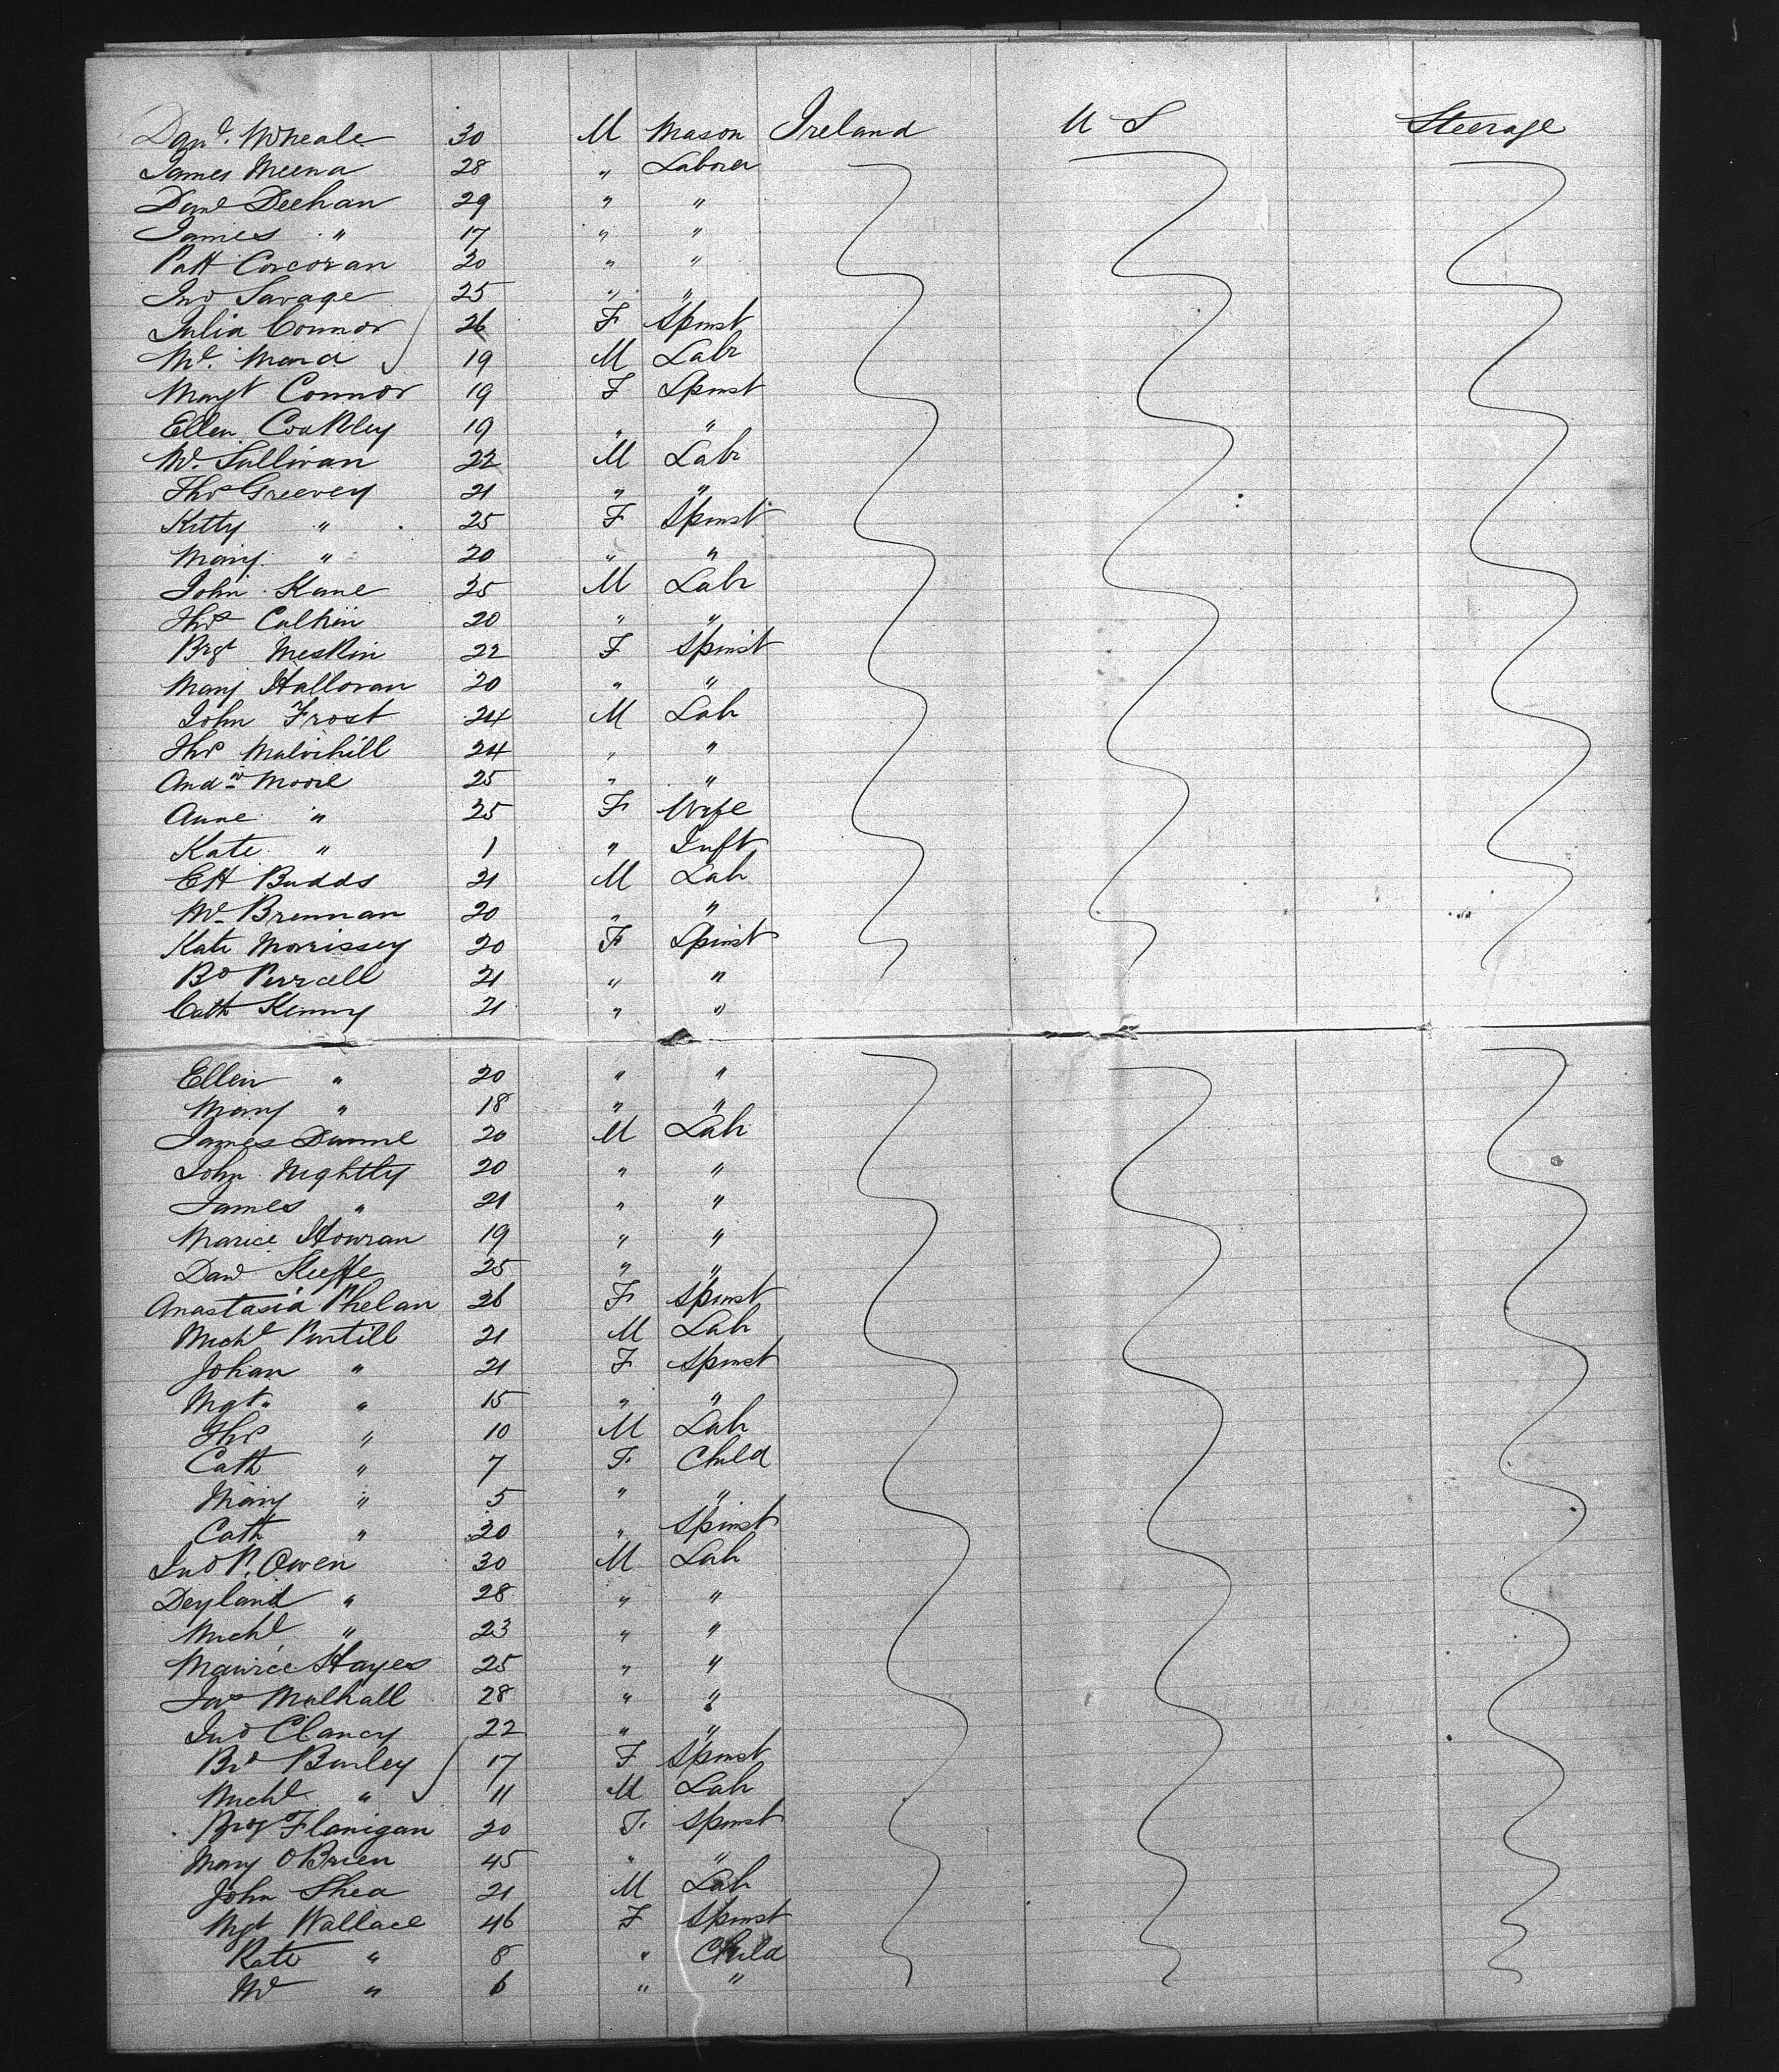 Danl. McNeale 30 M Mason Ireland U S Steerage
James Meena 28 " Laborer
Danl Deehan 29 " "
James " 17 " "
Patt Corcoran 30 " "
Jno Savage 25 " "
Julia Connor 26 F Spinst
Ml. Ward 19 M Labr
Margt Connor 19 F Spinst
Ellen Coakley 19 " "
Wm. Sullivan 22 M Labr
Thos Greevey 21 " "
Kitty " 25 F Spinst
Mary " 20 " "
John Kane 35 M Labr
Thos Calkin 20 " "
Brgt Meskin 22 F Spinst
Mary Halloran 20 " "
John Frost 24 M Lab
Thos Mulvihill 24 " "
Andw Moore 25 " "
Anne " 25 F Wife
Kate " 1 " Inft
Ett Budds 21 M Lab
Ml Brennan 20 " "
Kate Morrissey 20 F Spinst
Bd Purcell 21 " "
Cath Kenny 21 " "
Ellen " 20 " "
Mary " 18 " "
James Dunne 20 M Lab
John Nightly 20 " "
James " 21 " "
Marice Houran 19 " "
Danl Keeffe 25 " "
Anastasia Phelan 26 F Spinst
Michl Purtill 21 M Lab
Johan " 21 F Spinst
Mgt. " 15 " "
Thos " 10 M Lab
Cath " 7 F Child
Mary " 5 " "
Cath " 20 " Spinst
Jno P. Owen 30 M Lab
Deyland " 28 " "
Michl " 23 " "
Maurice Hayes 25 " "
Jas Mulhall 28 " "
Jno Clancy 22 " "
Bd Burley 17 F Spinst
Michl " 11 M Lab
Brgt Flanigan 20 F. Spinst
Mary O Brien 45 " "
John Shea 21 M Lab
Mgt Wallace 46 F Spinst
Kate " 8 " Child
Ml " 6 " "